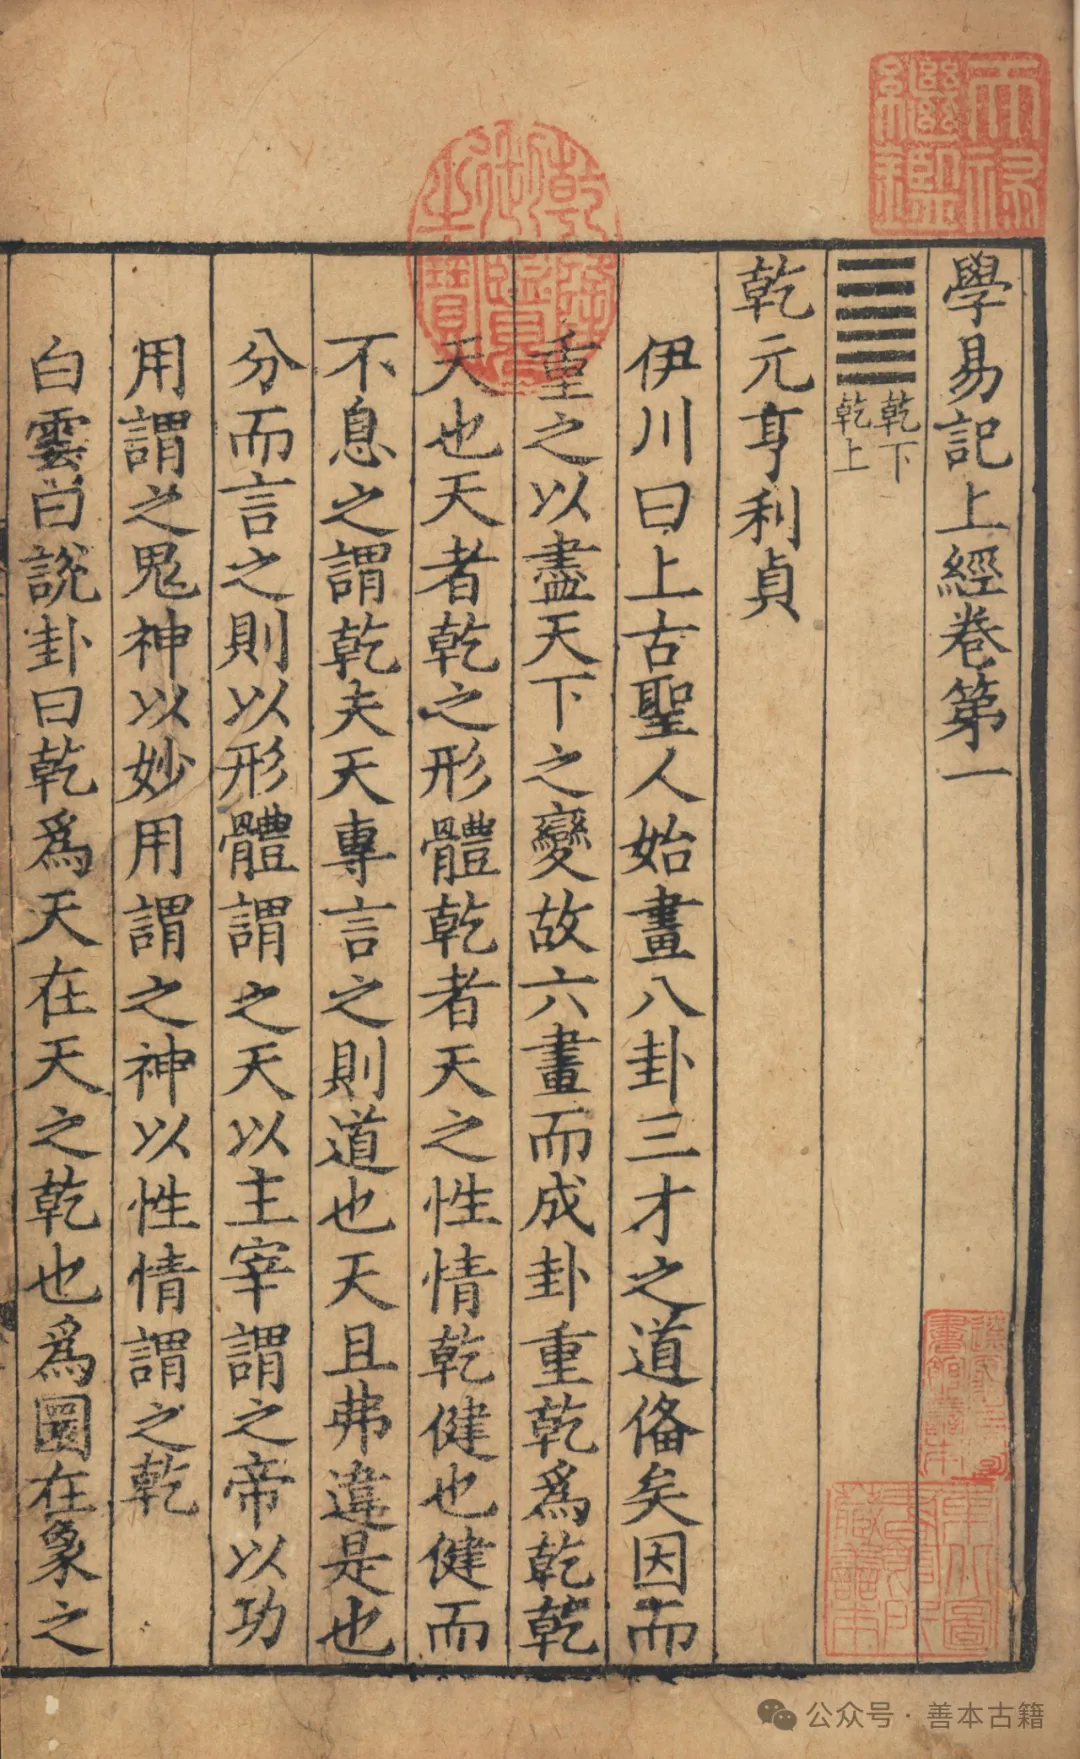 學易記上經卷第一
乾下
乾上
乾元亨利貞
伊川曰上古聖人始畫八卦三才之道俻矣因而
重之以盡天下之變故六畫而成卦重乾爲乾乾
天也天者乾之形體乾者天之性情乾健也健而
不息之謂乾夫天專言之則道也天且弗違是也
分而言之則以形體謂之天以主宰謂之帝以功
用謂之鬼神以妙用謂之神以性情謂之乾
白雲曰說卦曰乾爲天在天之乾也爲圜在象之
天祿繼鑑
乾隆御覽之寶
公众号·善本古籍